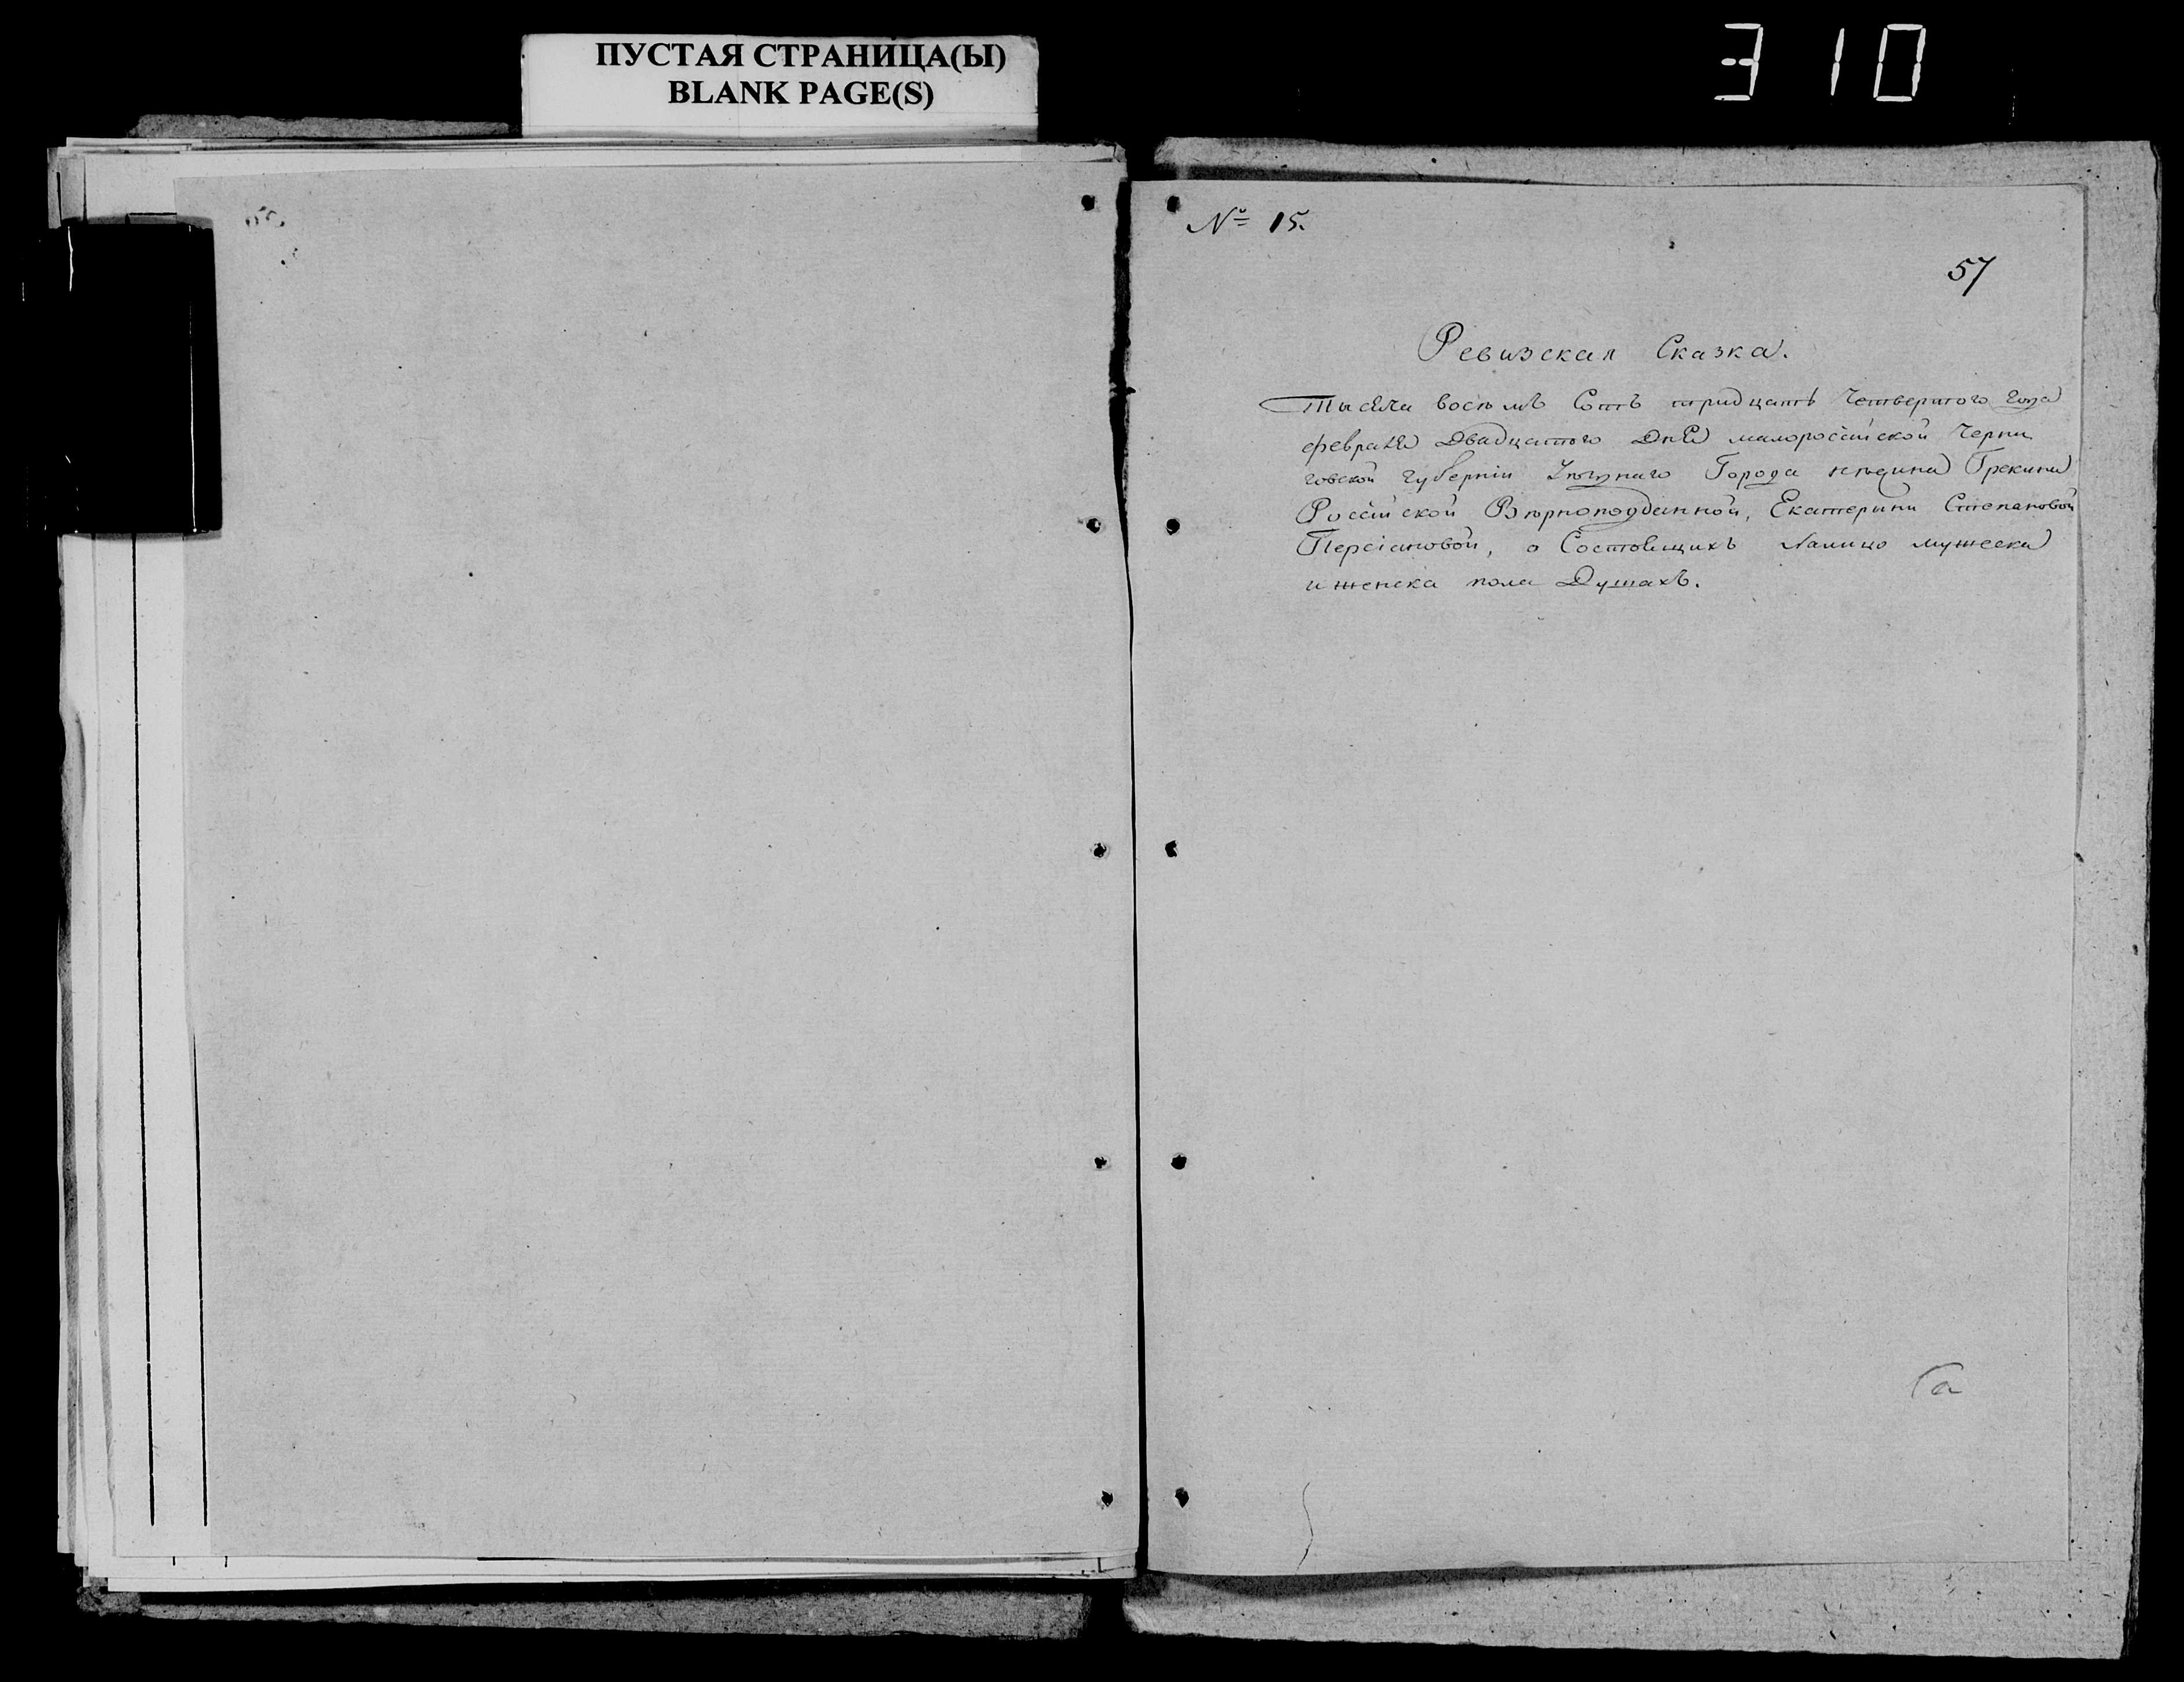 ПУСТАЯ СТРАНИЦА(Ы)
BLANK PAGE(S)
310
№ 15.
57
Ревизская Сказка.
Тысяча восемь Сотъ тридцать Четвертого года
февраля Двадцатого Дня малороссійской Черни
говской губерніи Уѣзднаго Города нѣжина Грекини
Россійской Вѣрноподданной, Екатерини Степановой
Персіановой, о Состоящихъ Налицо мужеска
и женска пола Душахъ.